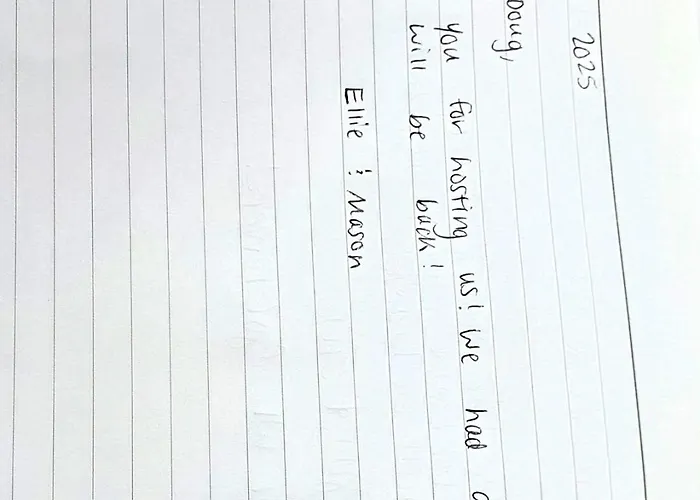 2025
Doug,
you for hosting us! We had
will be back!
Ellie & Mason